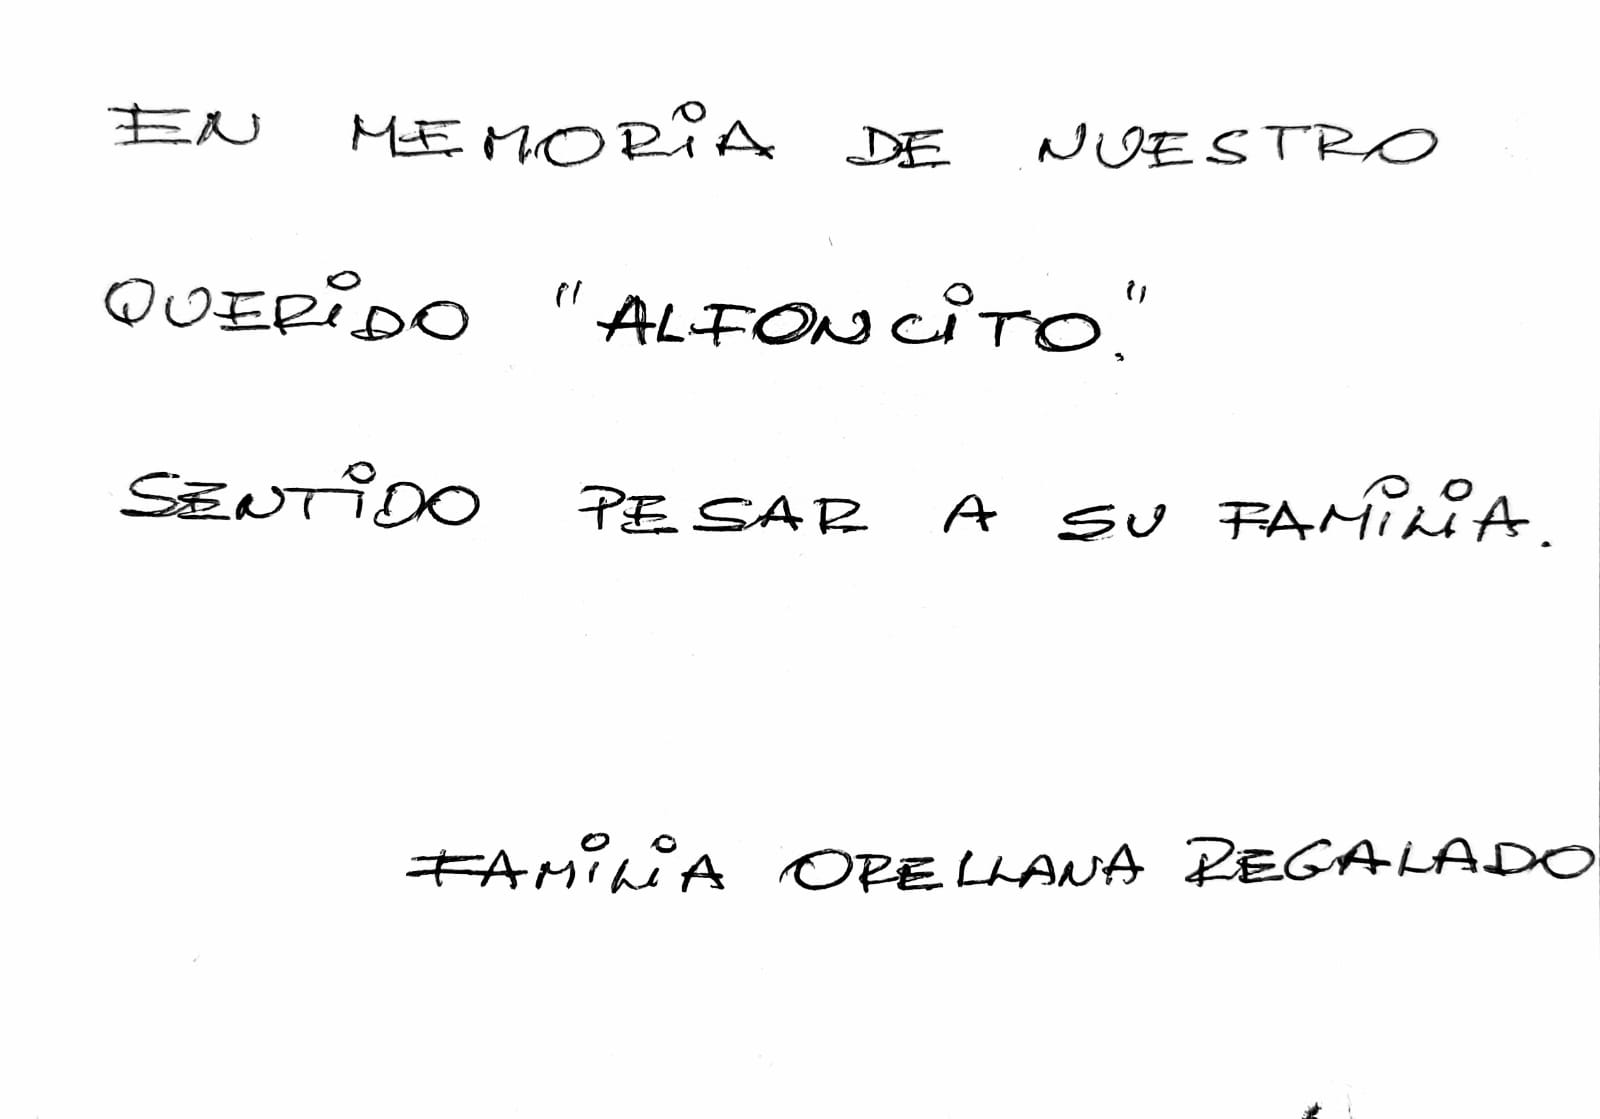 EN MEMORiA DE NUESTRO
QUERiDO "ALFONCiTO."
SENTiDO PESAR A SU FAMiLiA.
FAMiLiA ORELLANA REGALADO